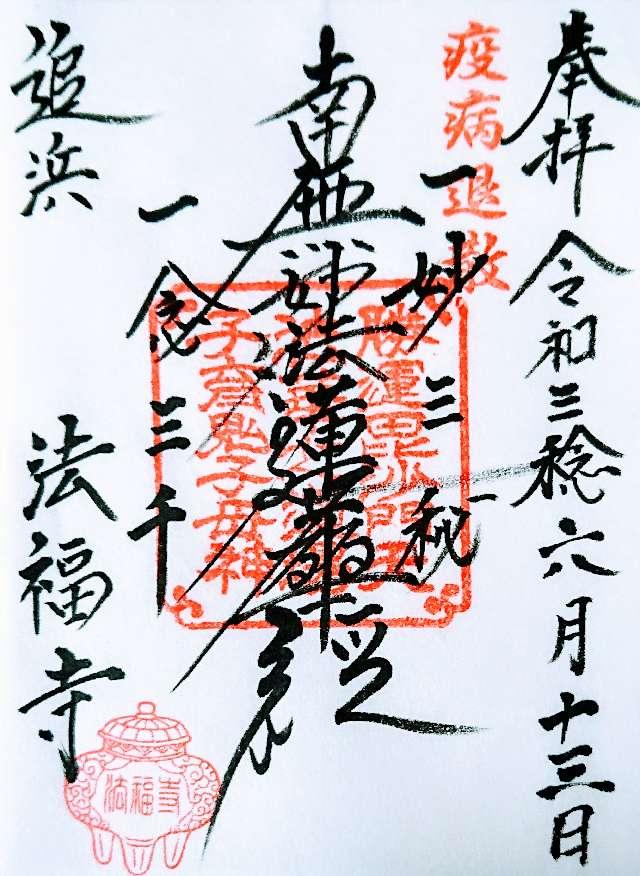 奉拝 令和三稔六月十三日
疫病退散
一妙三秘
南無妙法蓮華経
一念三千
追浜 法福寺
子育鬼子母神
法福寺